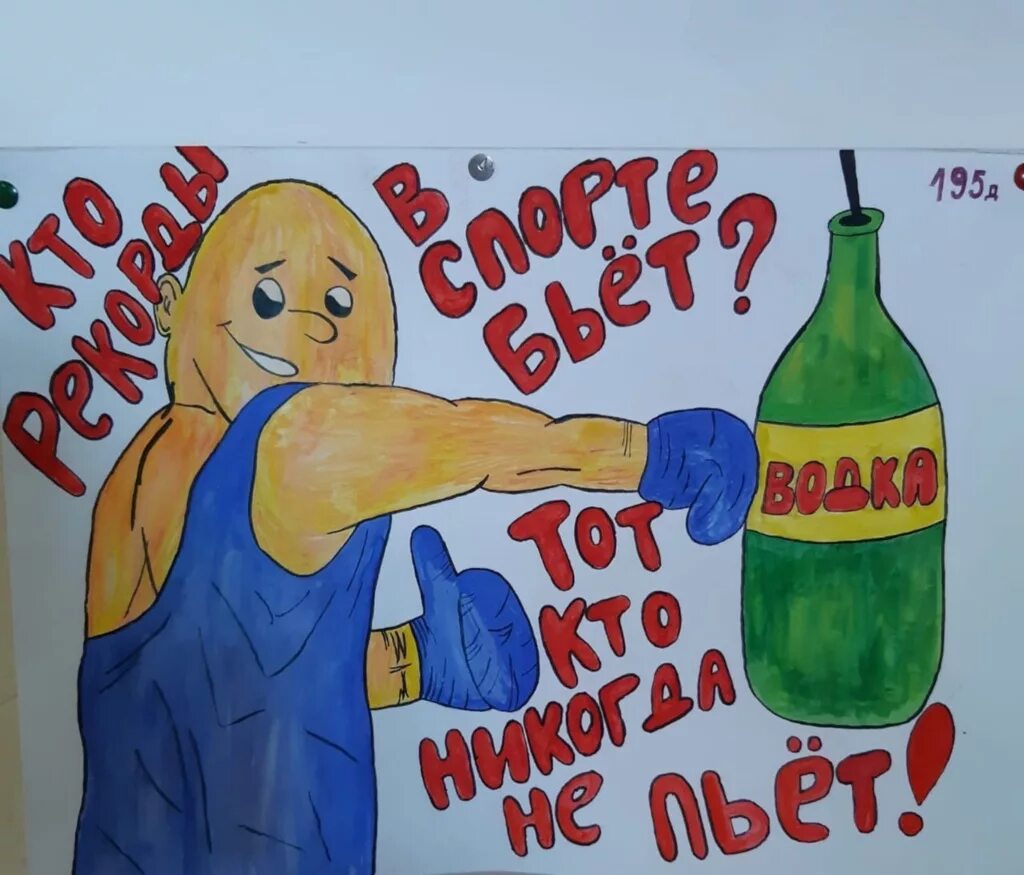 КТО
РЕКОРДЫ
В
СПОРТЕ
БЬЁТ?
195д
ВОДКА
ТОТ
КТО
НИКОГДА
НЕ ПЬЁТ!